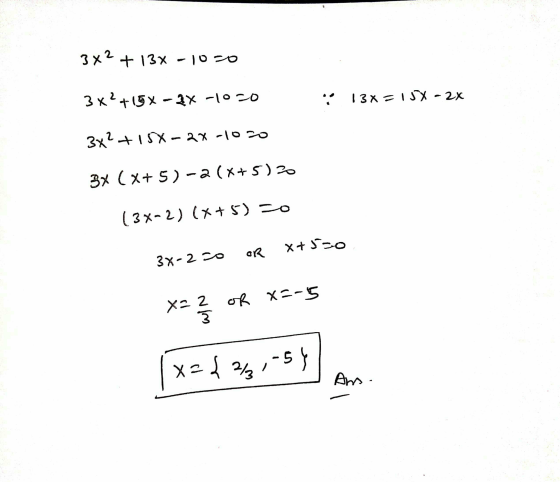 3x² + 13x - 10 = 0
3x² + 15x - 2x - 10 = 0 ∵ 13x = 15x - 2x
3x² + 15x - 2x - 10 = 0
3x (x + 5) - 2 (x + 5) = 0
(3x - 2) (x + 5) = 0
3x - 2 = 0 OR x + 5 = 0
x = 2/3 OR x = -5
x = { 2/3 , -5 }
Ans.